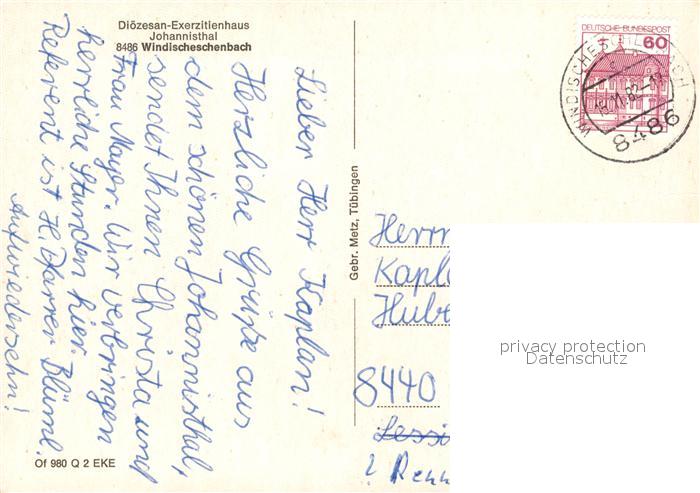 Diözesan-Exerzitienhaus
Johannisthal
8486 Windischeschenbach
Lieber Herr Kaplan!
Herzliche Grüße aus
dem schönen Johannisthal,
sendet Ihnen Christa und
Frau Mayer. Wir verbringen
herrliche Stunden hier.
Referent ist H. Pfarrer Blüml.
Aufwiedersehn!
Of 980 Q 2 EKE
Gebr. Metz, Tübingen
DEUTSCHE BUNDESPOST
60
8486
Herrn
Kapl
Hube
8440
privacy protection
Datenschutz